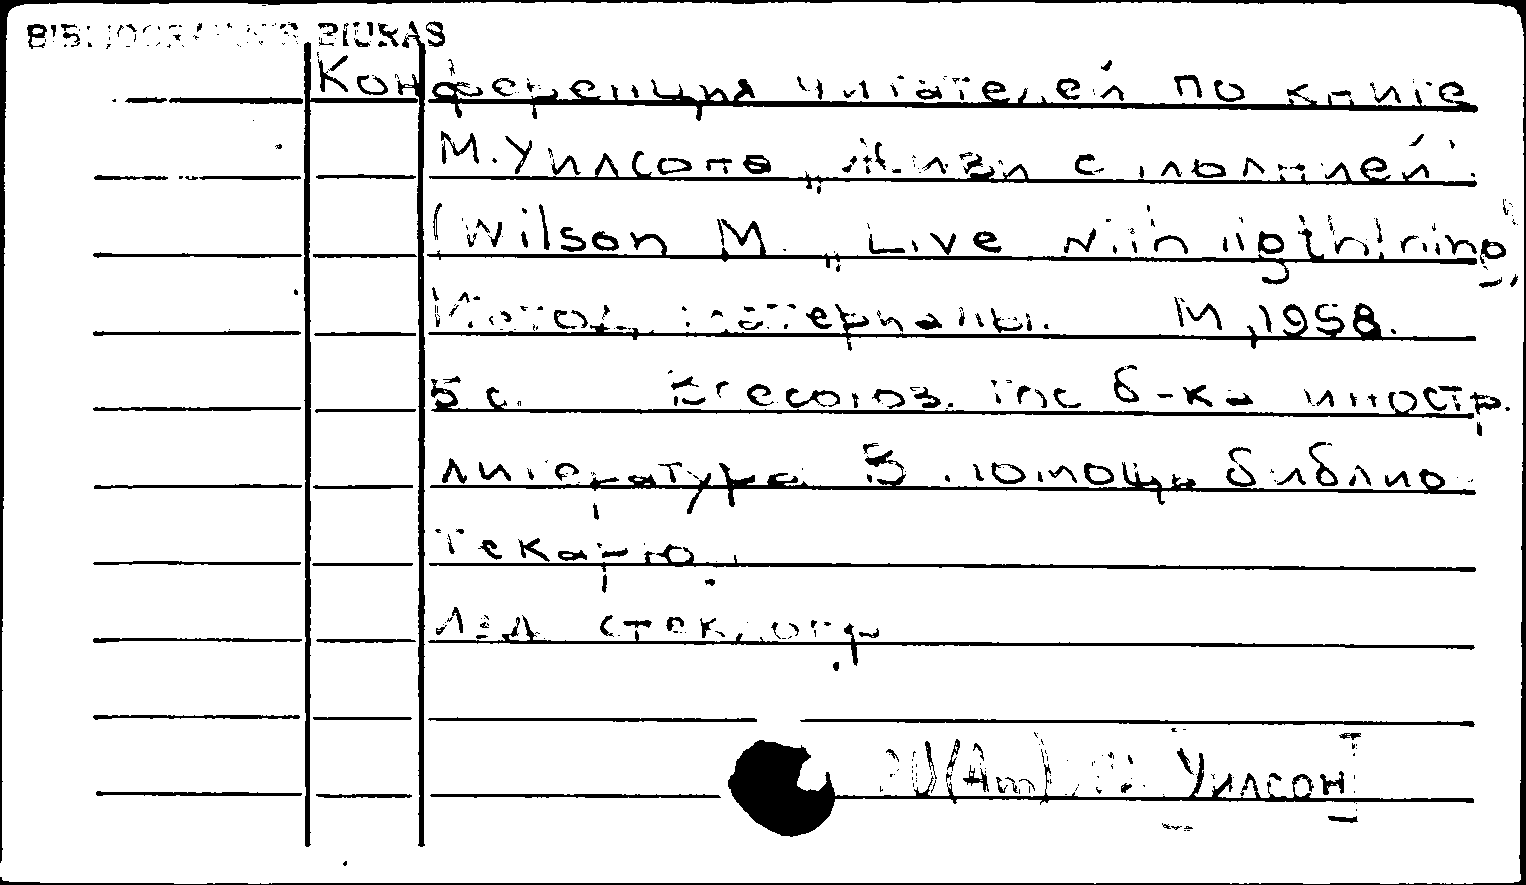 BIBLIOGRAFINIS BIURAS
Конференция читателей по книге
М. Уилсона „Живи с молнией".
(Wilson M. „Live with ligthning"
Метод. материалы. М., 1958.
5 с. Всесоюз. гос б-ка иностр.
литературы В помощь библио
текарю.
стеклогр.
(Am) Уилсон]